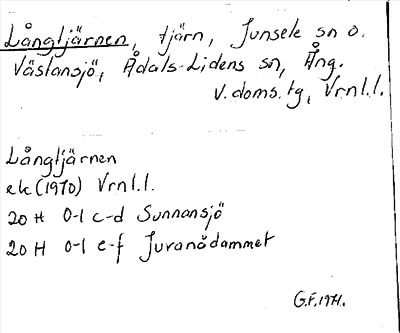 Långtjärnen, tjärn, Junsele sn o.
Västansjö, Ådals-Lidens sn, Ång.
V. doms. tg, Vrnl.l.
Långtjärnen
ek (1970) Vrnl.l.
20 H 0-1 c-d Sunnansjö
20 H 0-1 e-f Juranådammet
G.F. 1971.